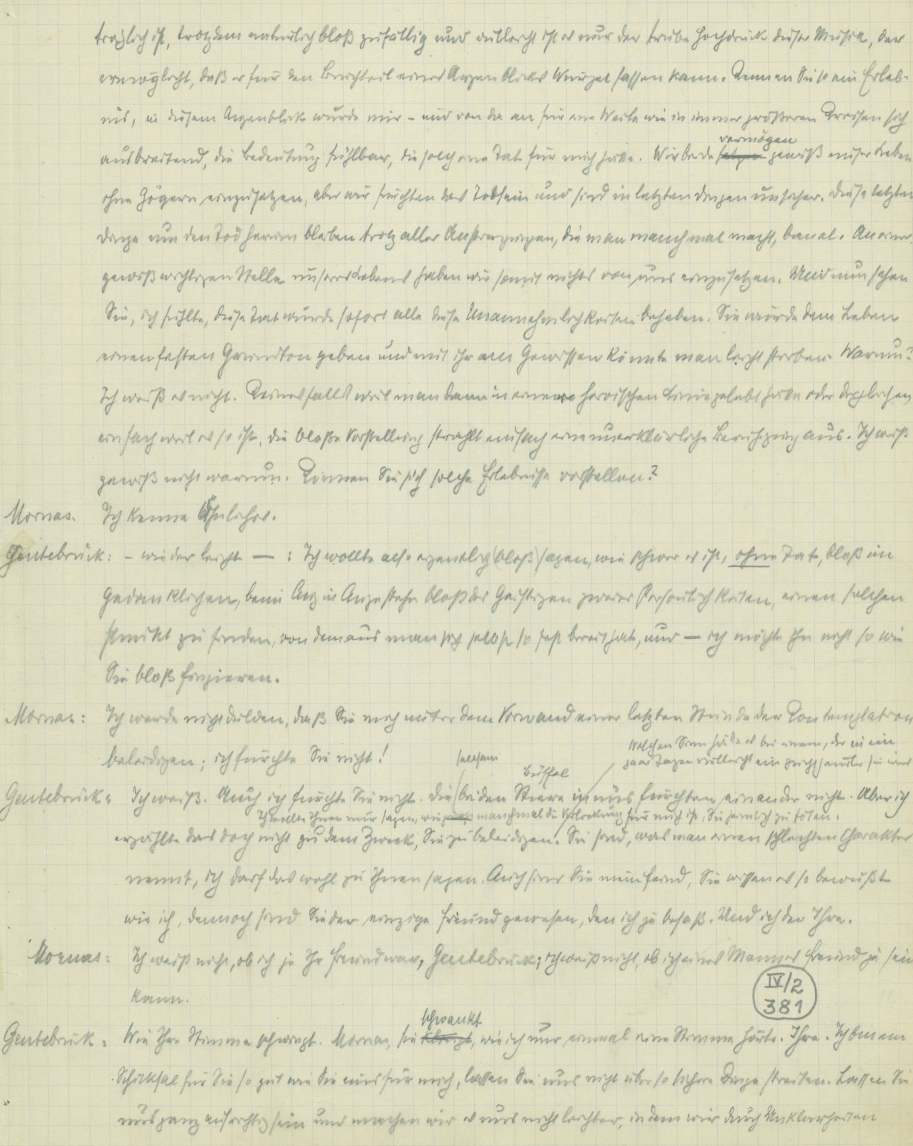 traglich ist, trotzdem natürlich bloß zufällig und vielleicht ist es nur der trübe Hochdruck dieser Musik, der
ermöglicht, daß er für den Bruchteil eines Augenblickes Wurzel fassen kann. Kennen Sie so ein Erleb-
nis, in diesem Augenblick wurde mir – und von da an für eine Weile wie in immer größeren Kreisen sich
vermögen
ausbreitend, die Bedeutung fühlbar, die solch eine Tat für mich hätte. Wir beide gewiß unser Leben
ohne Zögern einzusetzen, aber wir fürchten das Todsein und sind in letzten Dingen unsicher. Diese letzten
Dinge um den Tod herum bleiben trotz aller Anstrengungen, die man manchmal macht, banal. An einer
gewiß wichtigen Stelle unseres Lebens haben wir somit nichts von uns einzusetzen. Und nun sehen
Sie, ich fühlte, diese Tat würde sofort alle diese Unannehmlichkeiten beheben. Sie würde dem Leben
einen festen Grundton geben und mit ihr am Gewissen könnte man leicht sterben. Warum?
Ich weiß es nicht. Keinesfalls weil man dann in einem heroischen gelebt hätte oder dergleichen
einfach weil es so ist, die bloße Vorstellung strahlt einfach eine unerklärliche Beruhigung aus. Ich weiß
gewiß nicht warum. Können Sie sich solche Erlebnisse vorstellen?
Mornas. Ich kenne Ähnliches.
Gentebrück: – wieder leicht — : Ich wollte also eigentlich bloß sagen, wie schwer es ist, ohne Tat, bloß im
Gedanklichen, beim Aug in Auge stehn bloß des Geistigen zweier Persönlichkeiten, einen solchen
Punkt zu finden, von dem aus man sich selbst so fest bereit hat, und — ich möchte ihn nicht so wie
Sie bloß fingieren.
Mornas: Ich werde nicht dulden, daß Sie mich unter dem Vorwand einer letzten Stunde der Kontemplation
beleidigen; ich fürchte Sie nicht!
Welchen Sinn hätte es bei einem, der in ein
paar Tagen vielleicht ein
seltsam
Büffel
Gentebrück: Ich weiß. Auch ich fürchte Sie nicht. Die beiden Stiere in uns fürchten einander nicht. Aber ich
Ich wollte Ihnen nur sagen, wie manchmal die für mich ist, Sie zu töten.
erzählte das doch nicht zu dem Zweck, Sie zu beleidigen. Sie sind, was man einen schlechten Charakter
nennt, ich darf das wohl zu Ihnen sagen. Auch sind Sie mein Feind, Sie wissen es so bewußt
wie ich, dennoch sind Sie der einzige Freund gewesen, den ich je besaß. Und ich der Ihre.
Mornas: Ich weiß nicht, ob ich je Ihr Freund war, Gentebrück; ich weiß nicht, ob ich eines Mannes Freund je sein
kann.
IV/2
381
schwankt
Gentebrück: Wie Ihre Stimme schwingt. Mornas, sie, wie ich nur einmal eine Stimme hörte. Ihre. Ich bin ein
Schicksal für Sie so gut wie Sie eins für mich, lassen Sie uns nicht über so sichere Dinge streiten. Lassen Sie
uns ganz aufrichtig sein und machen wir es uns nicht leichter, indem wir durch Unklarheiten